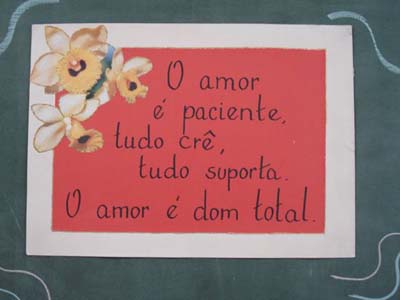 O amor
é paciente,
tudo crê,
tudo suporta.
O amor é dom total.